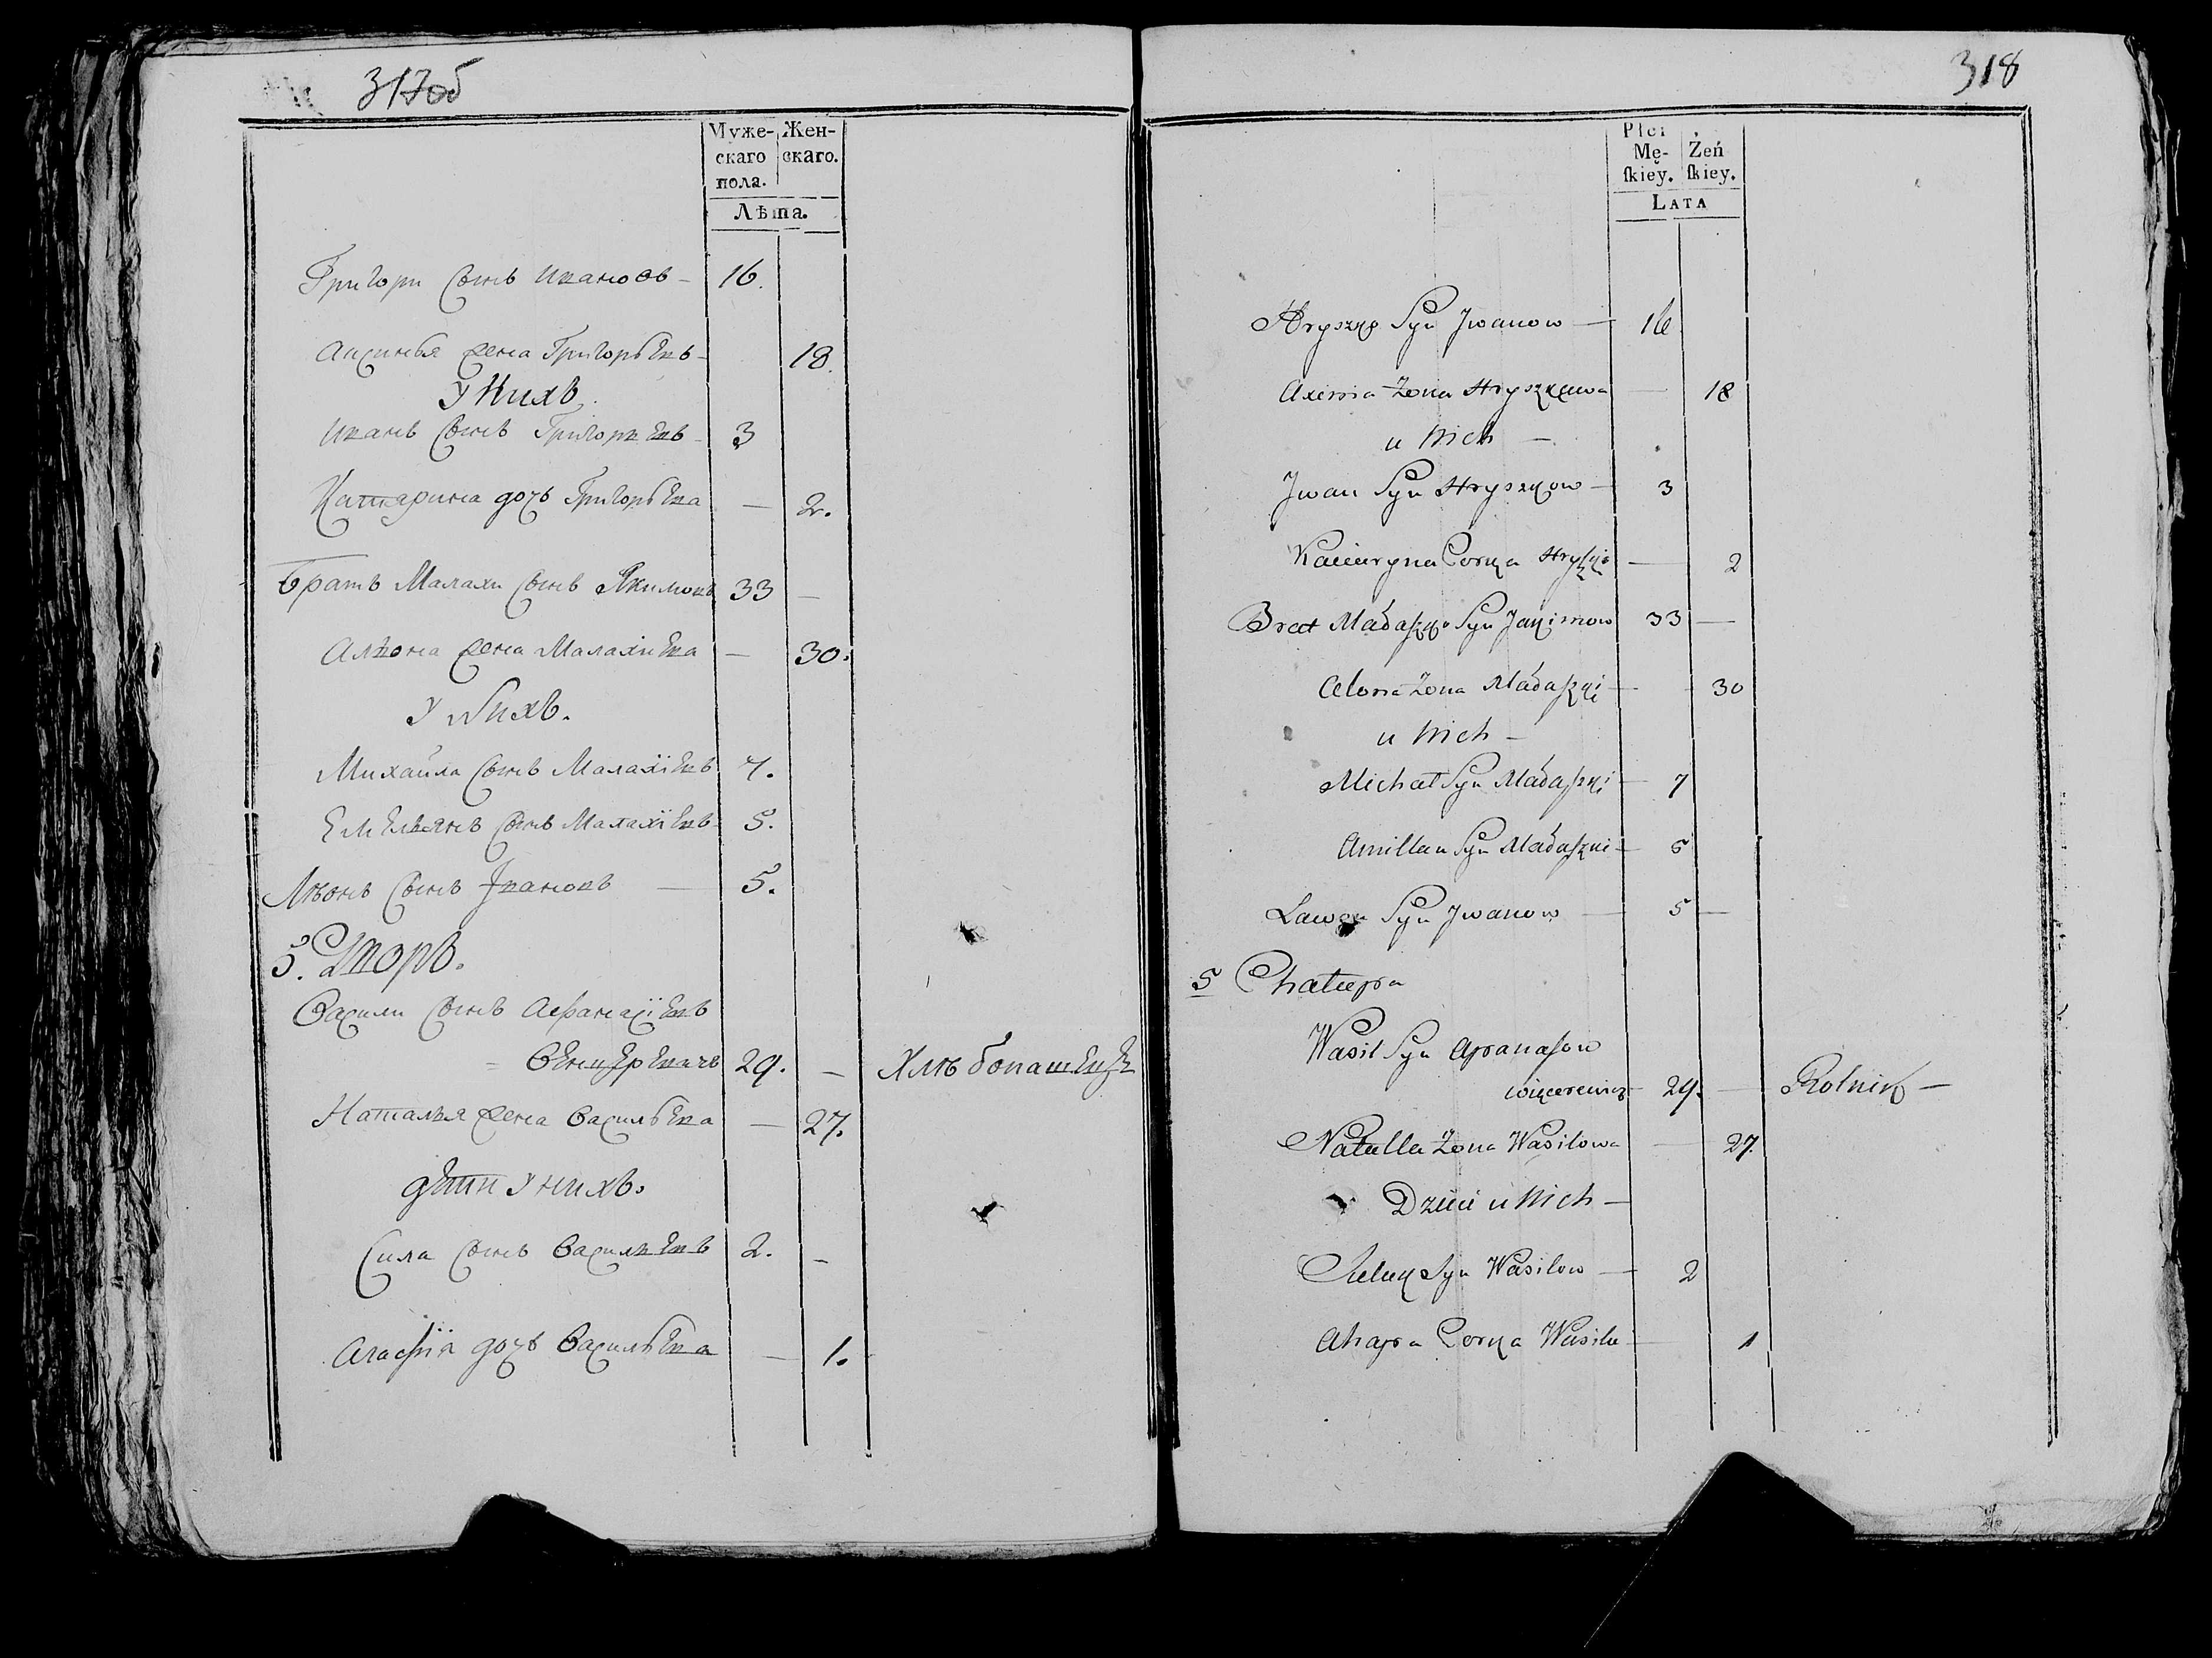 317об
Муже-
скаго
пола.
Жен-
скаго.
Лѣта.
Григори сынъ Ивановъ - 16.
Аксинья жена Григорьевъ - 18.
У Нихъ.
Иванъ сынъ Григорьевъ - 3
Катарина дочь Григорьева — 2.
Братъ Малахи сынъ Якимовъ 33 —
Алѣона жена Малахиева — 30.
У Нихъ.
Михайла сынъ Малахіевъ 7.
Емельянъ сынъ Малахіевъ 5.
Лѣонъ сынъ Iвановъ — 5.
5. Дворъ.
Васили сынъ Афанасіевъ
29. — Хлѣбопашецъ
Наталья жена Васильева — 27.
дѣти у нихъ.
Сила сынъ Васильевъ 2. -
Агафія дочь Васильева — 1.
318
Płci
Mę-
ſkiey.
Żeń
ſkiey.
LATA
Hryszko Syn Jwanow — 16
Axinia Zona Hryszkowa — 18
u Nich —
Jwan Syn Hryszkow — 3
Kaciaryna Corka Hryszki — 2
Brat Małaszko Syn Jakimow 33 —
Alona Zona Małaszki — 30
u Nich —
Michał Syn Małaszki — 7
Amillan Syn Małaszki — 5
Syn Jwanow — 5 —
5 Chałupa
Wasil Syn Apanasow
29. — Rolnik —
Natalla Zona Wasilowa — 27.
Dzieci u Nich —
Syn Wasilow — 2
Ahapa Corka Wasila — 1